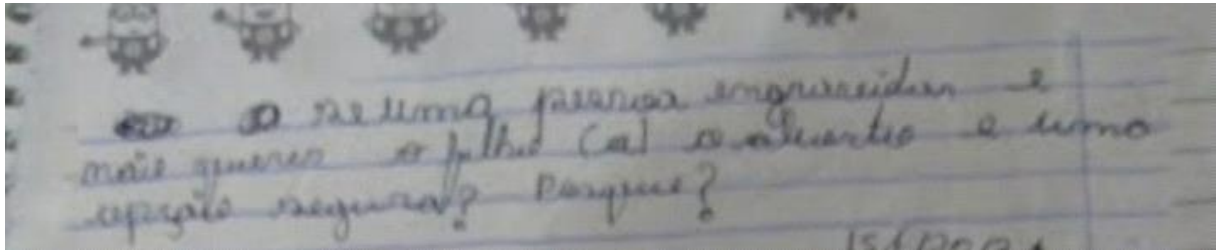 se uma pessoa engravidar e
não querer o filho (a) o aborto e uma
opção segura? Porque?